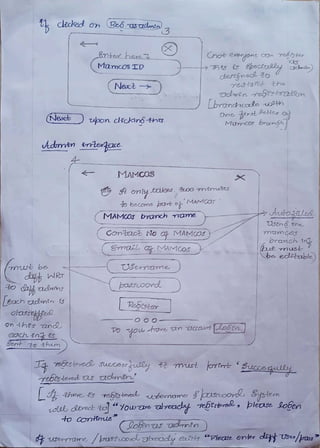 If clicked on Reg. as admin
3
Enter here ?
MAMCOS ID
Next →
(not everyone can register as admin)
→ This is specially
designed to
restrict the
admin registration
[branchcode with
one first letter of
Mamcos branch]
Next upon clicking this
Admin interface
4
← MAMCOS ×
It only takes two minutes
to become part of 'MAMCOS
MAMCOS branch name
Contact No of MAMCOS
Email of MAMCOS
Autofilled
Using the
mamcos
branch
(but must
be editable)
must be
diff WRT
to diff admins
[each admin is
on this and
each
sent to them
Username
password
Register
Do you have an account login
If registered successfully it must print "Succesfully
registered as admin"
[If there is registered username & password system
will direct to] "You are already registered, please login
to continue"
login as admin
If username / password already exists "Please enter diff User/pass"